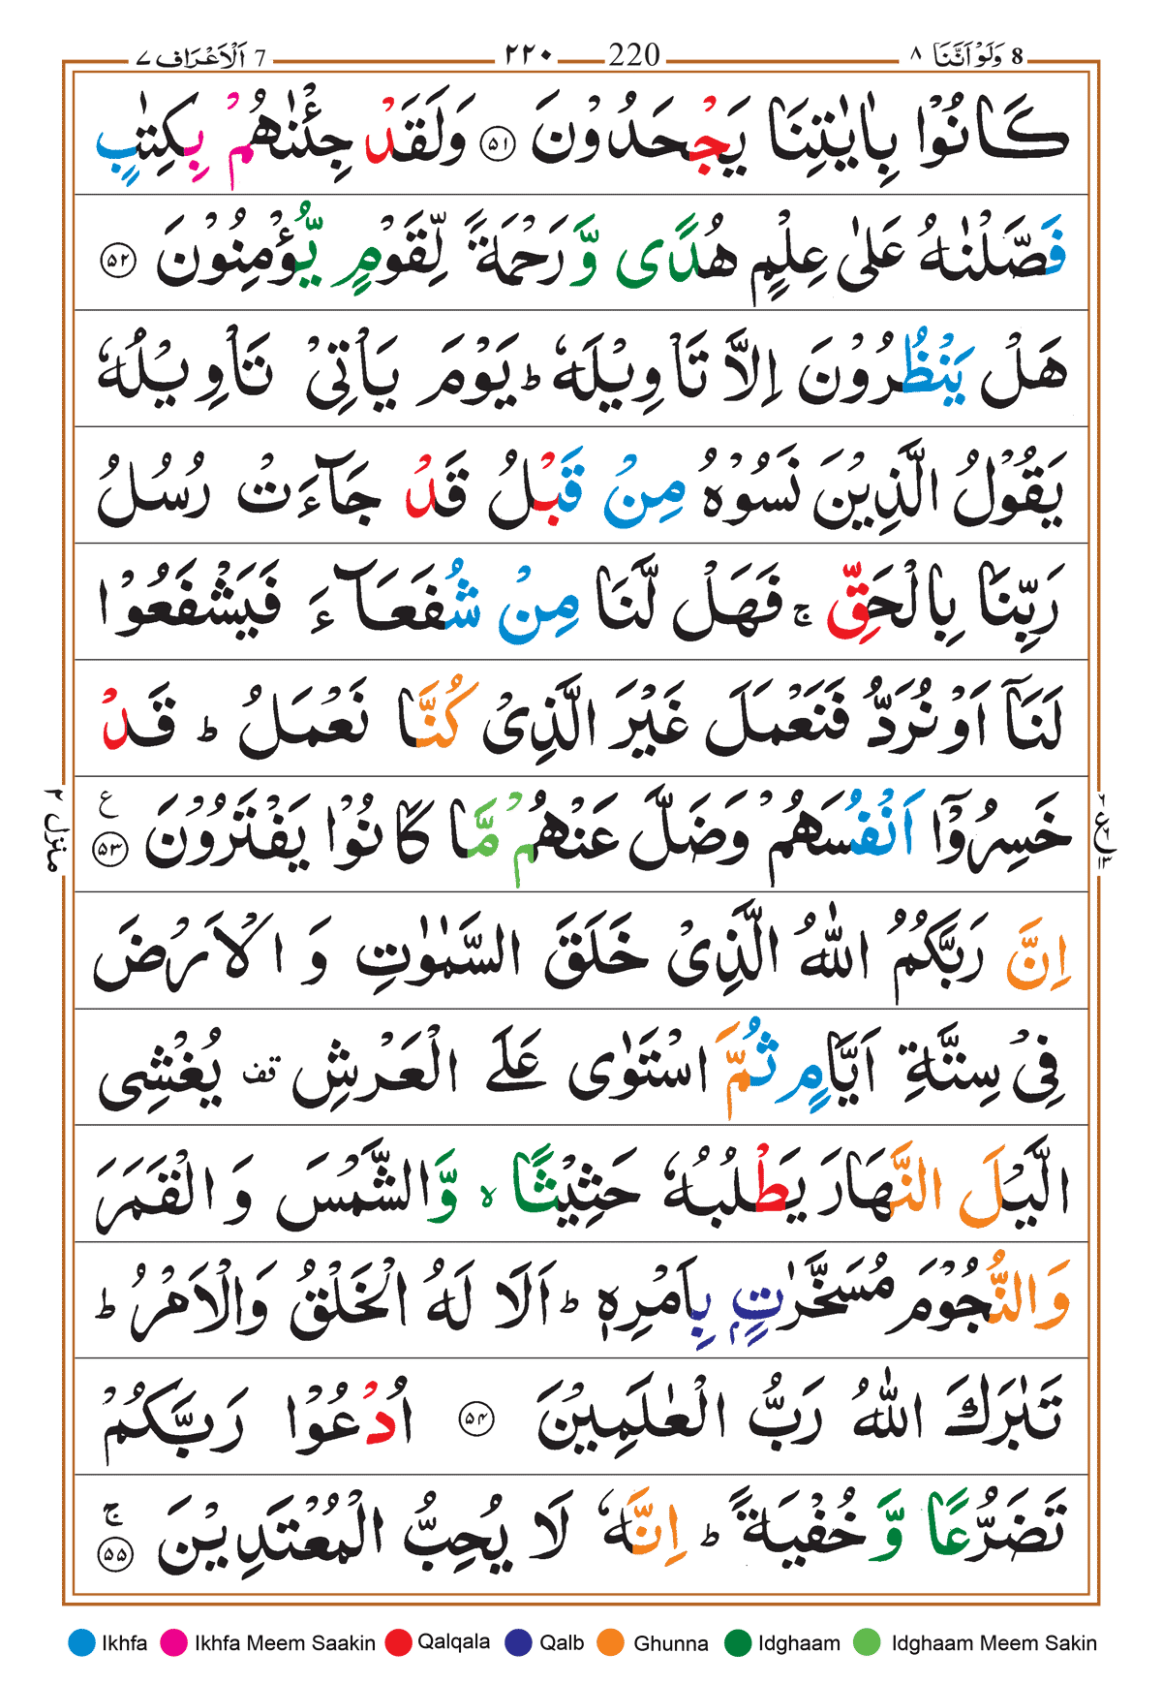 8 وَلَوْ اَنَّنَا ۸ 220 ۲۲۰ 7 اَلْاَعْرَاف ۷
كَانُوْا بِاٰيٰتِنَا يَجْحَدُوْنَ ۵۱ وَلَقَدْ جِئْنٰهُمْ بِكِتٰبٍ
فَصَّلْنٰهُ عَلٰى عِلْمٍ هُدًى وَّرَحْمَةً لِّقَوْمٍ يُّؤْمِنُوْنَ ۵۲
هَلْ يَنْظُرُوْنَ اِلَّا تَاْوِيْلَهٗ ؕ يَوْمَ يَاْتِيْ تَاْوِيْلُهٗ
يَقُوْلُ الَّذِيْنَ نَسُوْهُ مِنْ قَبْلُ قَدْ جَآءَتْ رُسُلُ
رَبِّنَا بِالْحَقِّ ۚ فَهَلْ لَّنَا مِنْ شُفَعَآءَ فَيَشْفَعُوْا
لَنَآ اَوْ نُرَدُّ فَنَعْمَلَ غَيْرَ الَّذِيْ كُنَّا نَعْمَلُ ؕ قَدْ
خَسِرُوْٓا اَنْفُسَهُمْ وَضَلَّ عَنْهُمْ مَّا كَانُوْا يَفْتَرُوْنَ ۵۳ ع
اِنَّ رَبَّكُمُ اللّٰهُ الَّذِيْ خَلَقَ السَّمٰوٰتِ وَ الْاَرْضَ
فِيْ سِتَّةِ اَيَّامٍ ثُمَّ اسْتَوٰى عَلَى الْعَرْشِ قف يُغْشِى
الَّيْلَ النَّهَارَ يَطْلُبُهٗ حَثِيْثًا ۙ وَّالشَّمْسَ وَ الْقَمَرَ
وَالنُّجُوْمَ مُسَخَّرٰتٍۭ بِاَمْرِهٖ ؕ اَلَا لَهُ الْخَلْقُ وَالْاَمْرُ ؕ
تَبٰرَكَ اللّٰهُ رَبُّ الْعٰلَمِيْنَ ۵۴ اُدْعُوْا رَبَّكُمْ
تَضَرُّعًا وَّ خُفْيَةً ؕ اِنَّهٗ لَا يُحِبُّ الْمُعْتَدِيْنَ ۵۵ ۚ
منزل ۲
Ikhfa Ikhfa Meem Saakin Qalqala Qalb Ghunna Idghaam Idghaam Meem Sakin